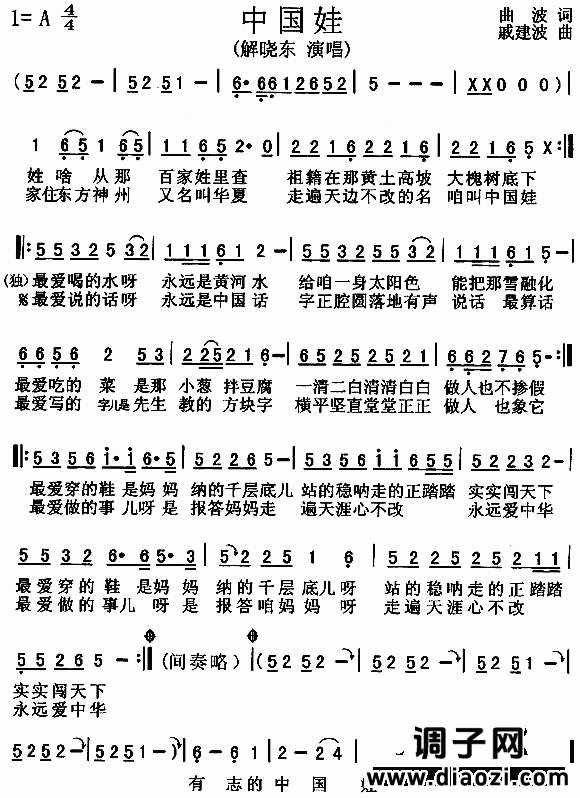 1=A 4/4
中国娃
曲波 词
(解晓东 演唱)
戚建波 曲
(52 52 - | 52 51 - | 6·6612652 | 52 - - - | XX000) |
1 65 1 65 | 1165 2·0 | 22162216 | 2216 X :||
姓啥从那 百家姓里查 祖籍在那黄土高坡 大槐树底下
家住东方神州 又名叫华夏 走遍天边不改的名 咱叫中国娃
||: 55325 32 | 1116 2 - | 55325 32 | 1116 5 - |
(独) 最爱喝的水呀 永远是黄河水 给咱一身太阳色 能把那雪融化
最爱说的话呀 永远是中国话 字正腔圆落地有声 说话 最算话
6656 2 53 | 2 225 216 - | 65252525 | 66276 5 - :||
最爱吃的 菜 是那 小葱 拌豆腐 一清二白清清白白 做人也不掺假
最爱写的 字儿是先生 教的 方块字 横平坚直堂堂正正 做人 也象它
||: 5356 1·1 | 1356 6·5 | 52265 - | 5356 1·1 | 116255 | 55232 - |
最爱穿的鞋是妈妈 纳的千层底儿 站的稳呐走的正踏踏 实实闯天下
最爱做的事儿呀是 报答妈妈走 遍天涯心不改 永远爱中华
55 32 6·5 6·53 | 5 225 1 6 | 5532 52 25 11 |
最爱穿的 鞋 是妈妈 纳的千层底儿呀 站的稳呐走的正踏踏
最爱做的事儿 呀是 报答咱妈妈呀 走遍天涯心不改
55265 - :|| (间奏略) | (52 52 - | 52 52 - | 52 51 - |
实实闯天下
永远爱中华
52 52 - | 52 52 -) | 6 - 6 1 | 2 - - 2
有 志的中 国
调子网
www.diaozi.com